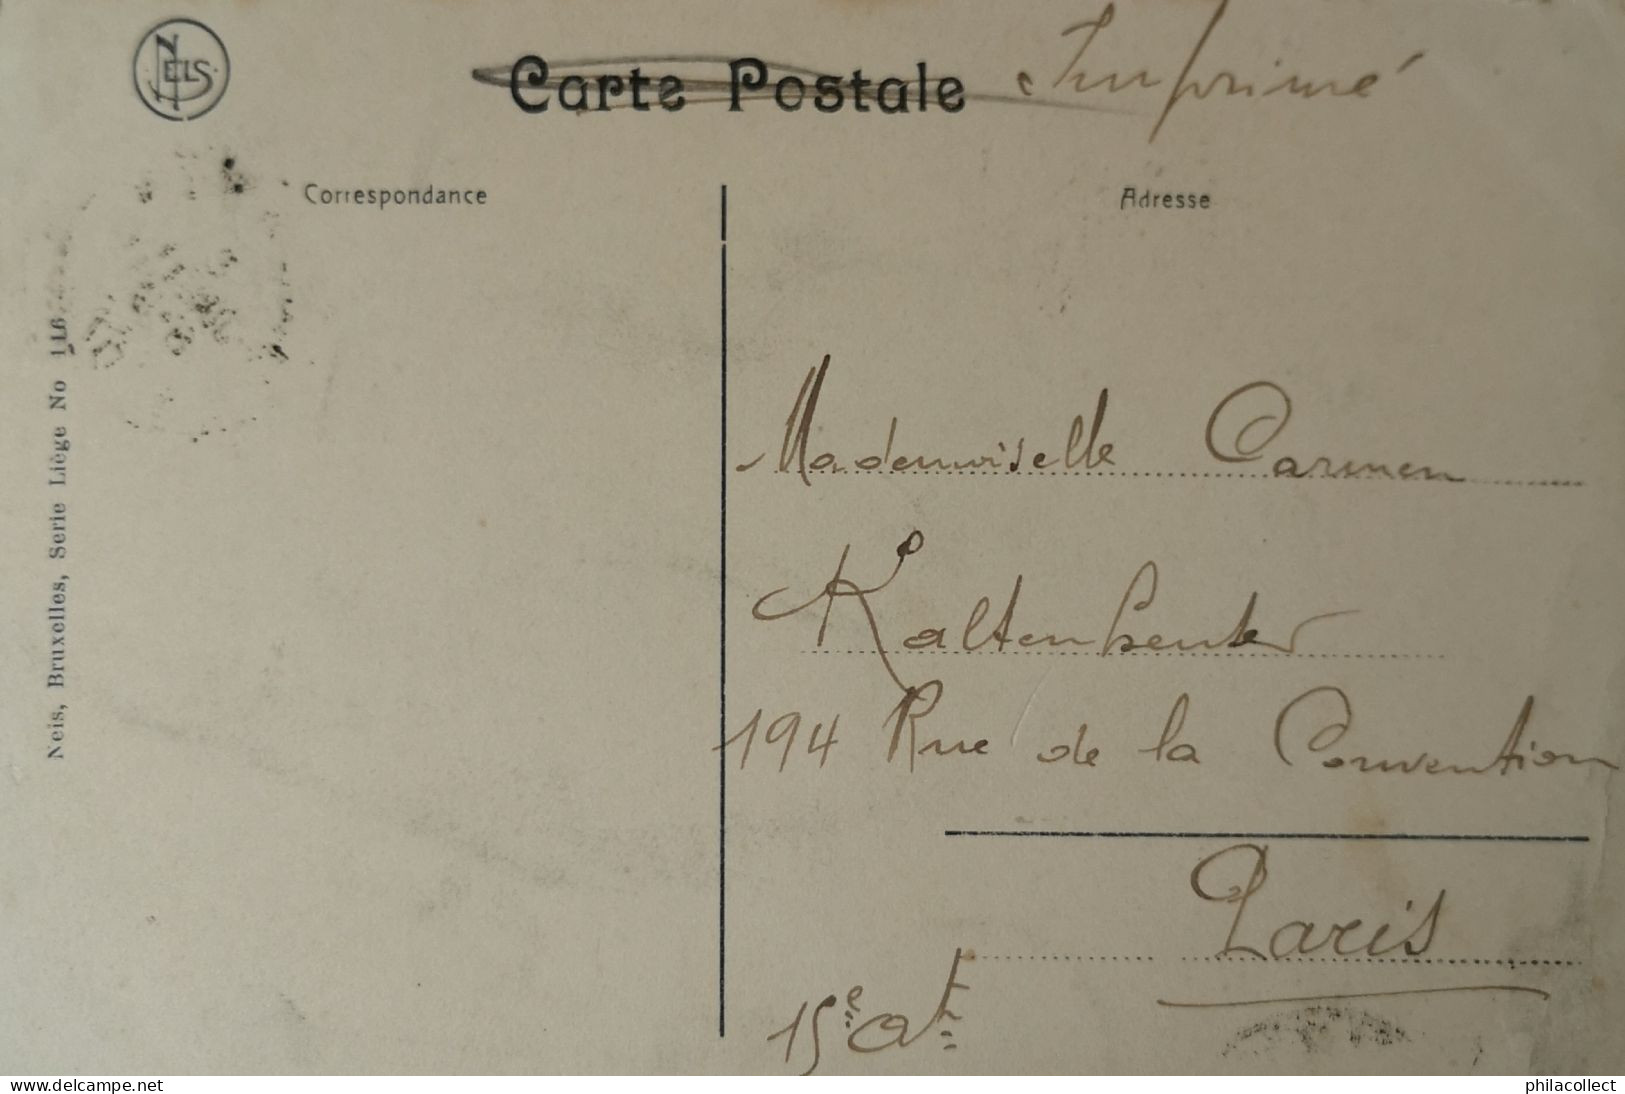 NELS
Carte Postale Imprimé
Correspondance
Adresse
Nels, Bruxelles, Serie Liège No 116
Mademoiselle Carmen
Kaltenbeuter
194 Rue de la Convention
Paris
15e at
www.delcampe.net
philacollect